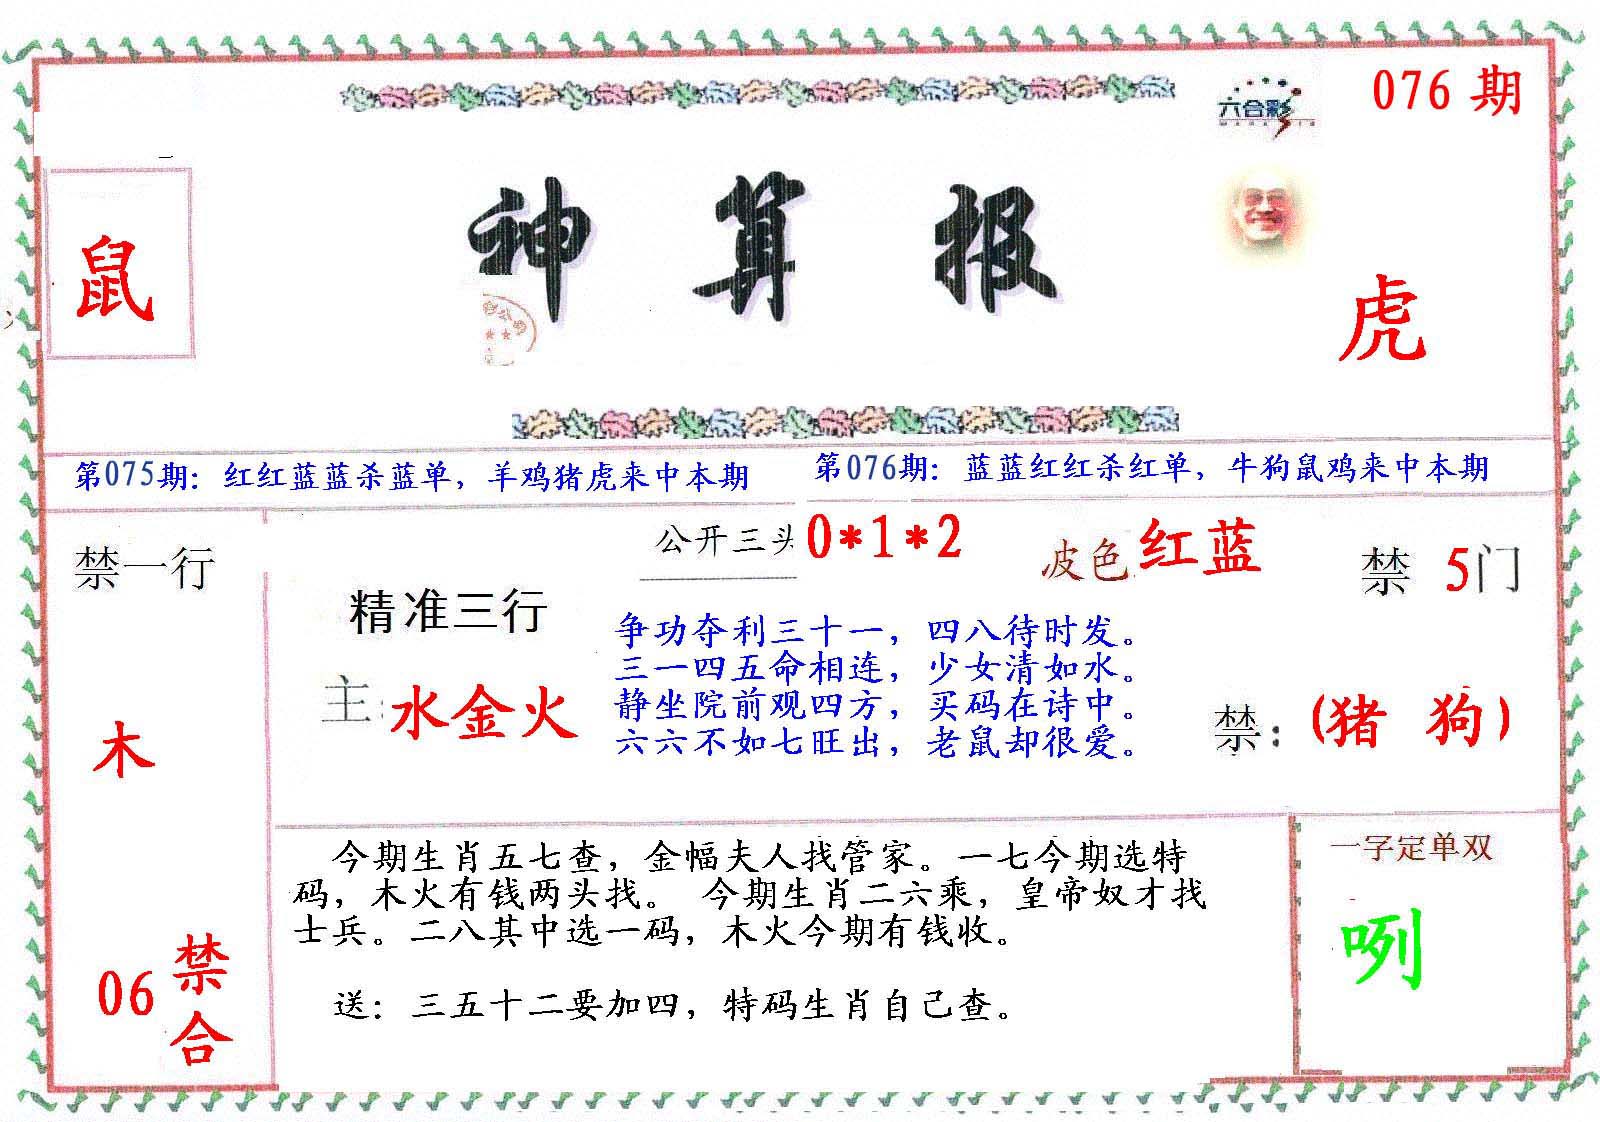 076 期
六合彩
神算报
鼠
虎
第075期：红红蓝蓝杀蓝单，羊鸡猪虎来中本期
第076期：蓝蓝红红杀红单，牛狗鼠鸡来中本期
禁一行
木
06 禁合
公开三头 0*1*2
皮色 红蓝
禁 5门
精准三行
主: 水金火
争功夺利三十一，四八待时发。
三一四五命相连，少女清如水。
静坐院前观四方，买码在诗中。
六六不如七旺出，老鼠却很爱。
禁: (猪 狗)
今期生肖五七查，金幅夫人找管家。一七今期选特
码，木火有钱两头找。 今期生肖二六乘，皇帝奴才找
士兵。二八其中选一码，木火今期有钱收。
送：三五十二要加四，特码生肖自己查。
一字定单双
咧